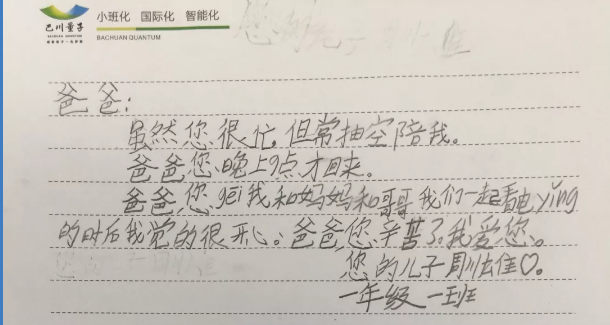 巴川量子
BACHUAN QUANTUM
小班化 国际化 智能化
BACHUAN QUANTUM
爸爸:
虽然您很忙,但常抽空陪我。
爸爸您晚上9点才回来。
爸爸,您gěi我和妈妈和哥哥我们一起看电yǐng
的时后我觉的很开心。爸爸您辛苦了,我爱您。
您的儿子
一年级一班